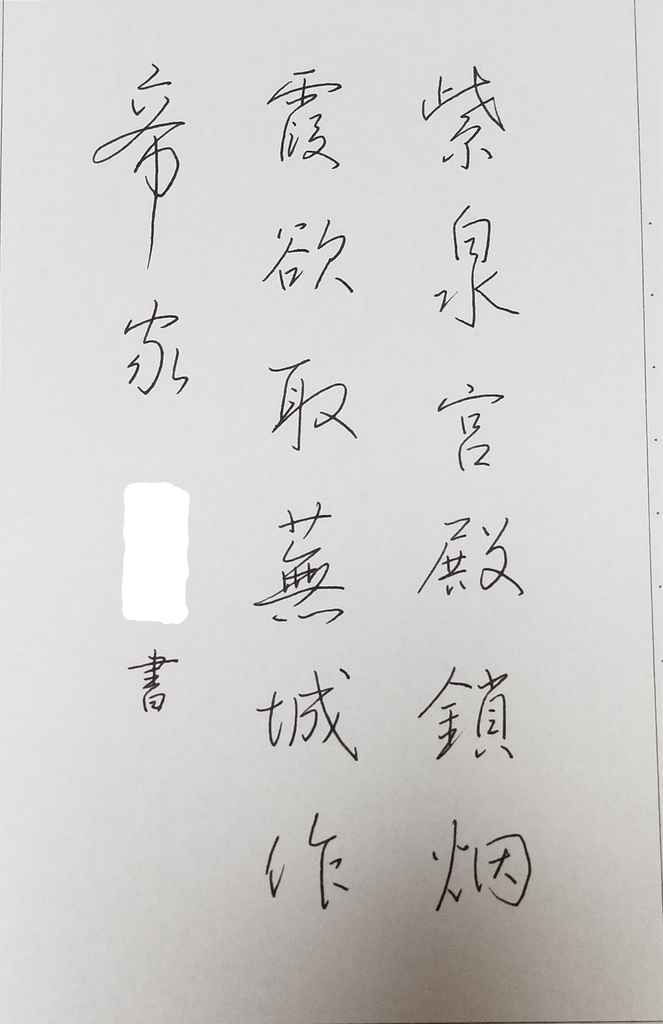 紫泉宮殿鎖烟
霞欲取蕪城作
帝家
書